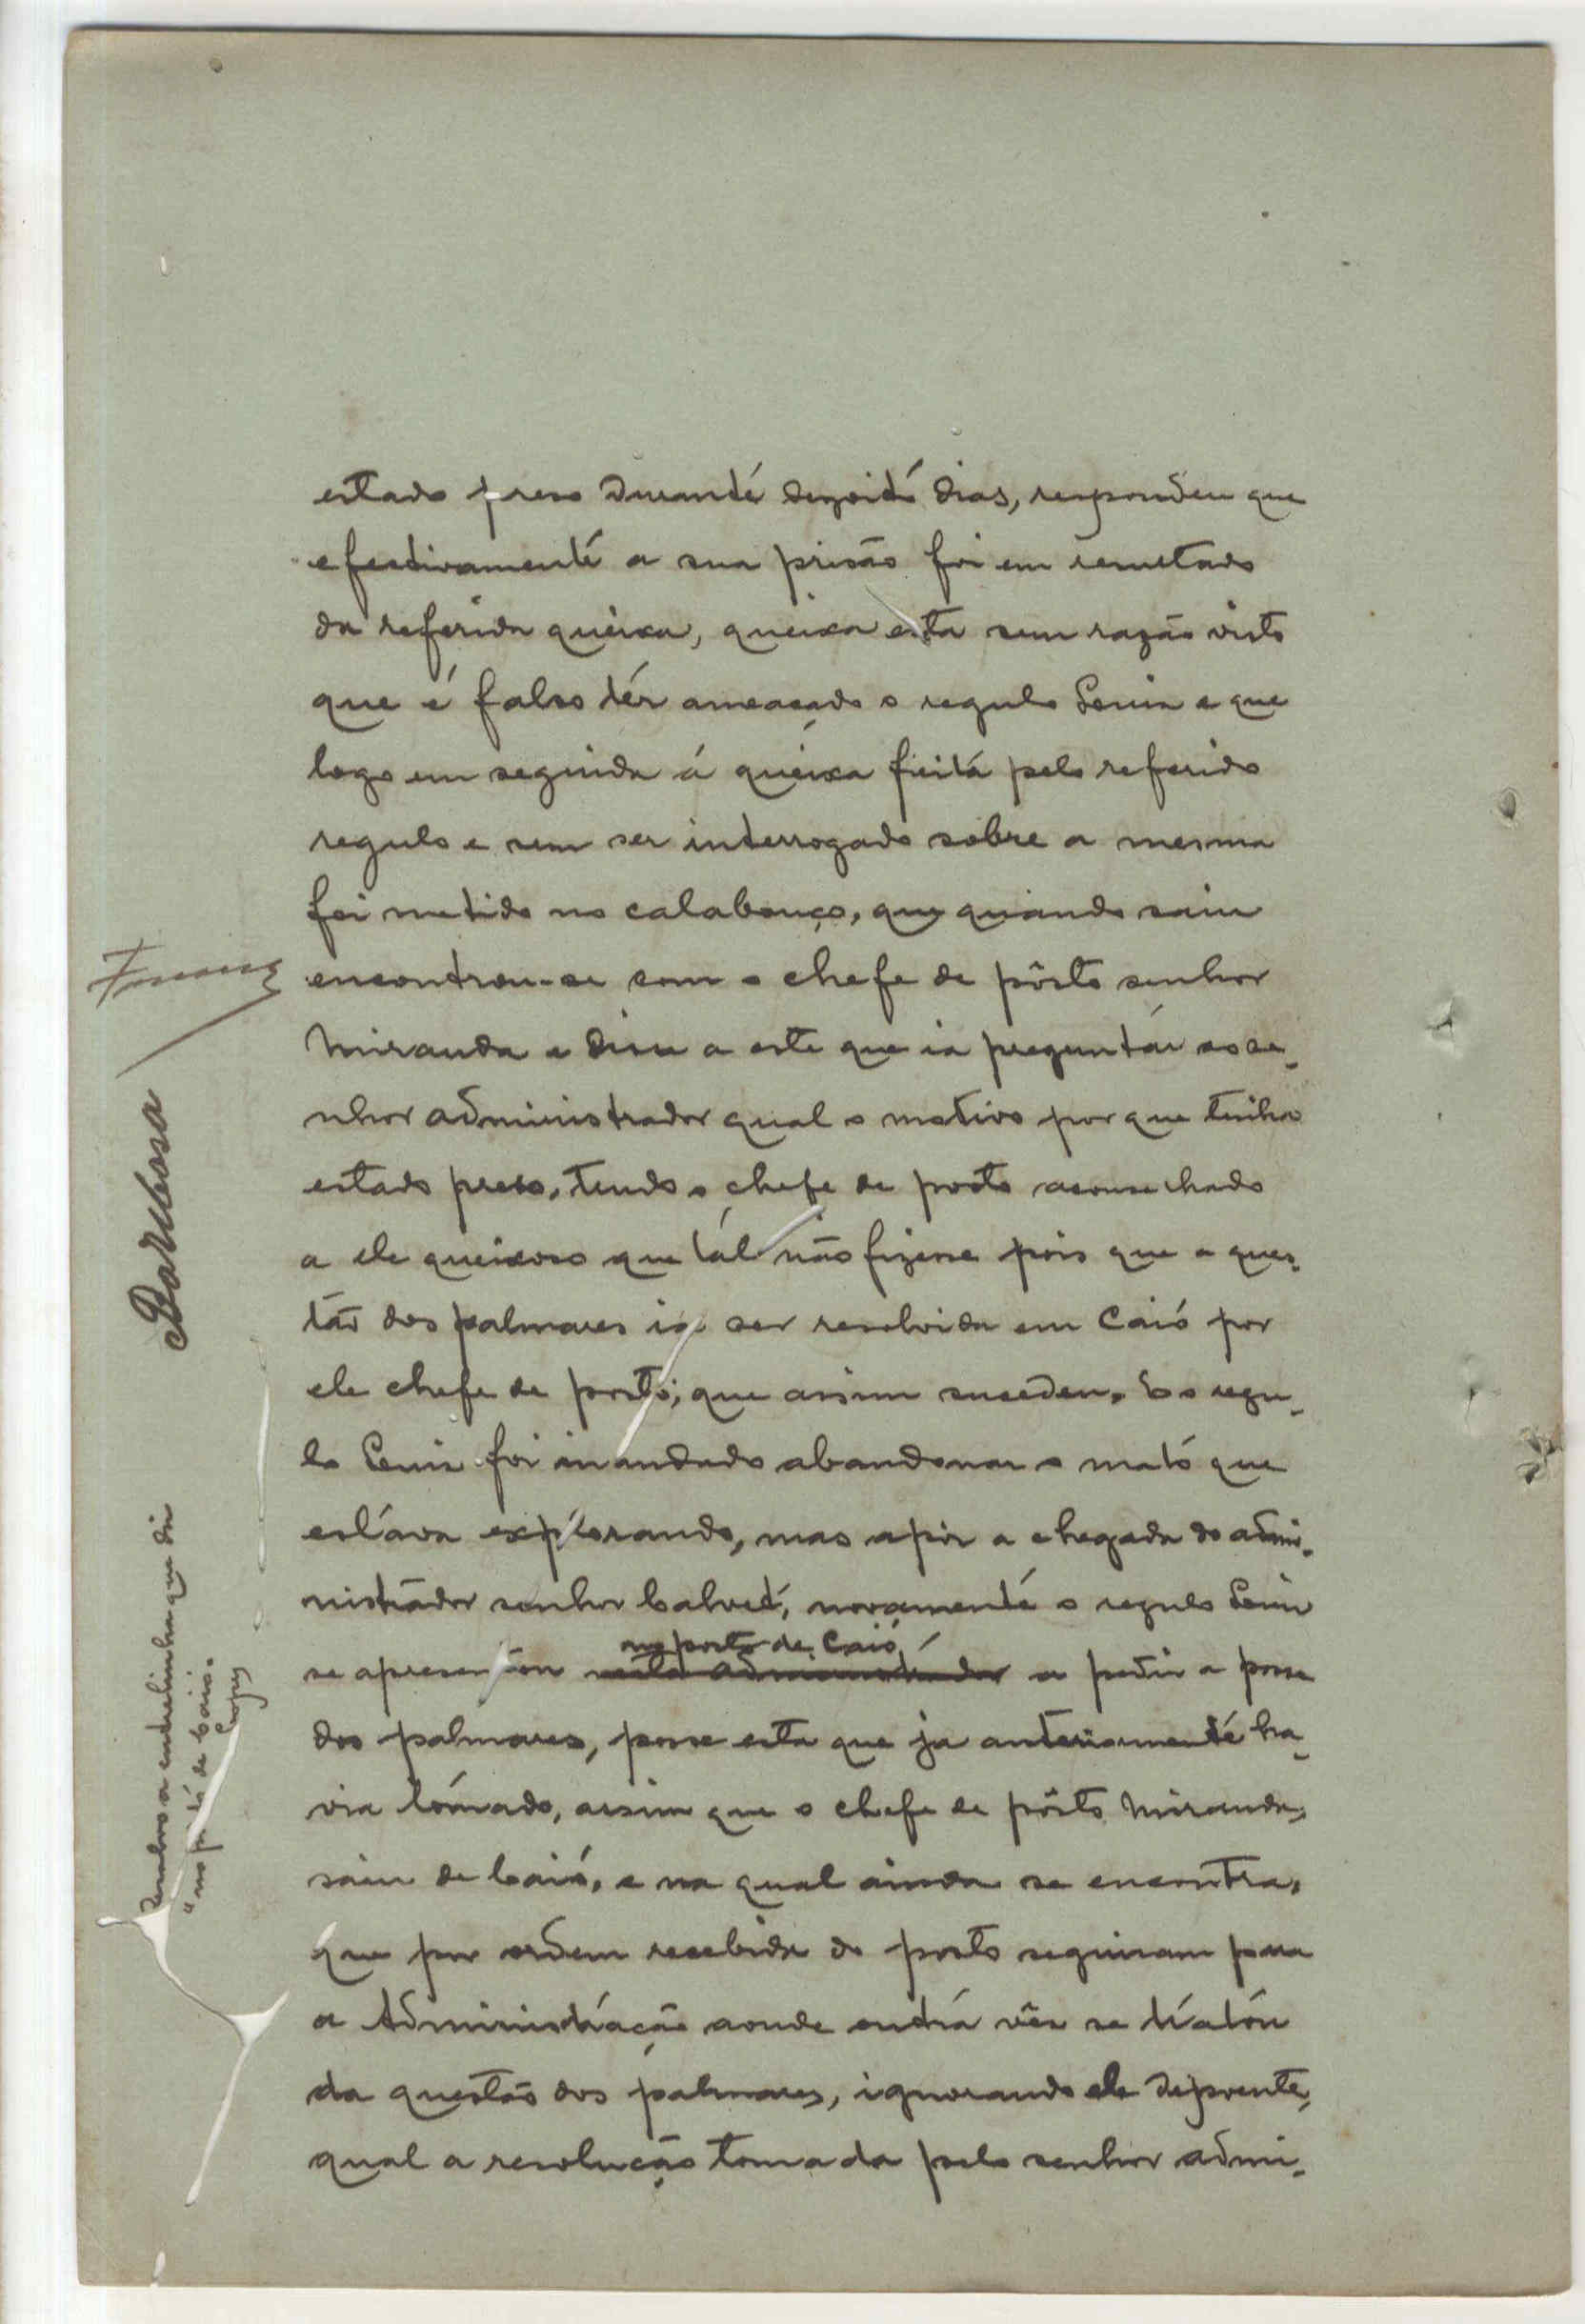 estado preso durante dezoito dias, respondeu que
efectivamente a sua prisão foi em resultado
da referida queixa, queixa esta sem razão visto
que é falso tér ameaçado o regulo Lenin e que
logo em seguida á queixa feita pelo referido
regulo e sem ser interrogado sobre a mesma
foi metido no calabouço, que quando saiu
encontrou-se com o chefe de pôsto senhor
Miranda e disse a este que ia preguntár ao se-
nhor administrador qual o motivo porque tinha
estado preso, tendo o chefe de posto aconselhado
a ele queixoso que tál não fizesse pois que a ques-
tão dos palmares ia ser resolvida em Caió por
ele chefe de posto; que assim sucedeu. E o regu-
lo Lenin foi mandado abandonar o mato que
estáva explorando, mas após a chegada do admi-
nistrador senhor Calvet, novamente o regulo Lenin
no posto de Caió
se apresentou a pedir a posse
dos palmares, posse esta que ja anteriormente ha-
via tomado, assim que o chefe de pôsto Miranda,
saiu de Caió, e na qual ainda se encontra,
que por ordem recebida do posto seguiram para
a Administração aonde outra vês se tratou
da questão dos palmares, ignorando ele depoente,
qual a resolução tomada pelo senhor admi-
Barbosa
Resalvo a entrelinha que diz
"no posto de Caió.
Lopes